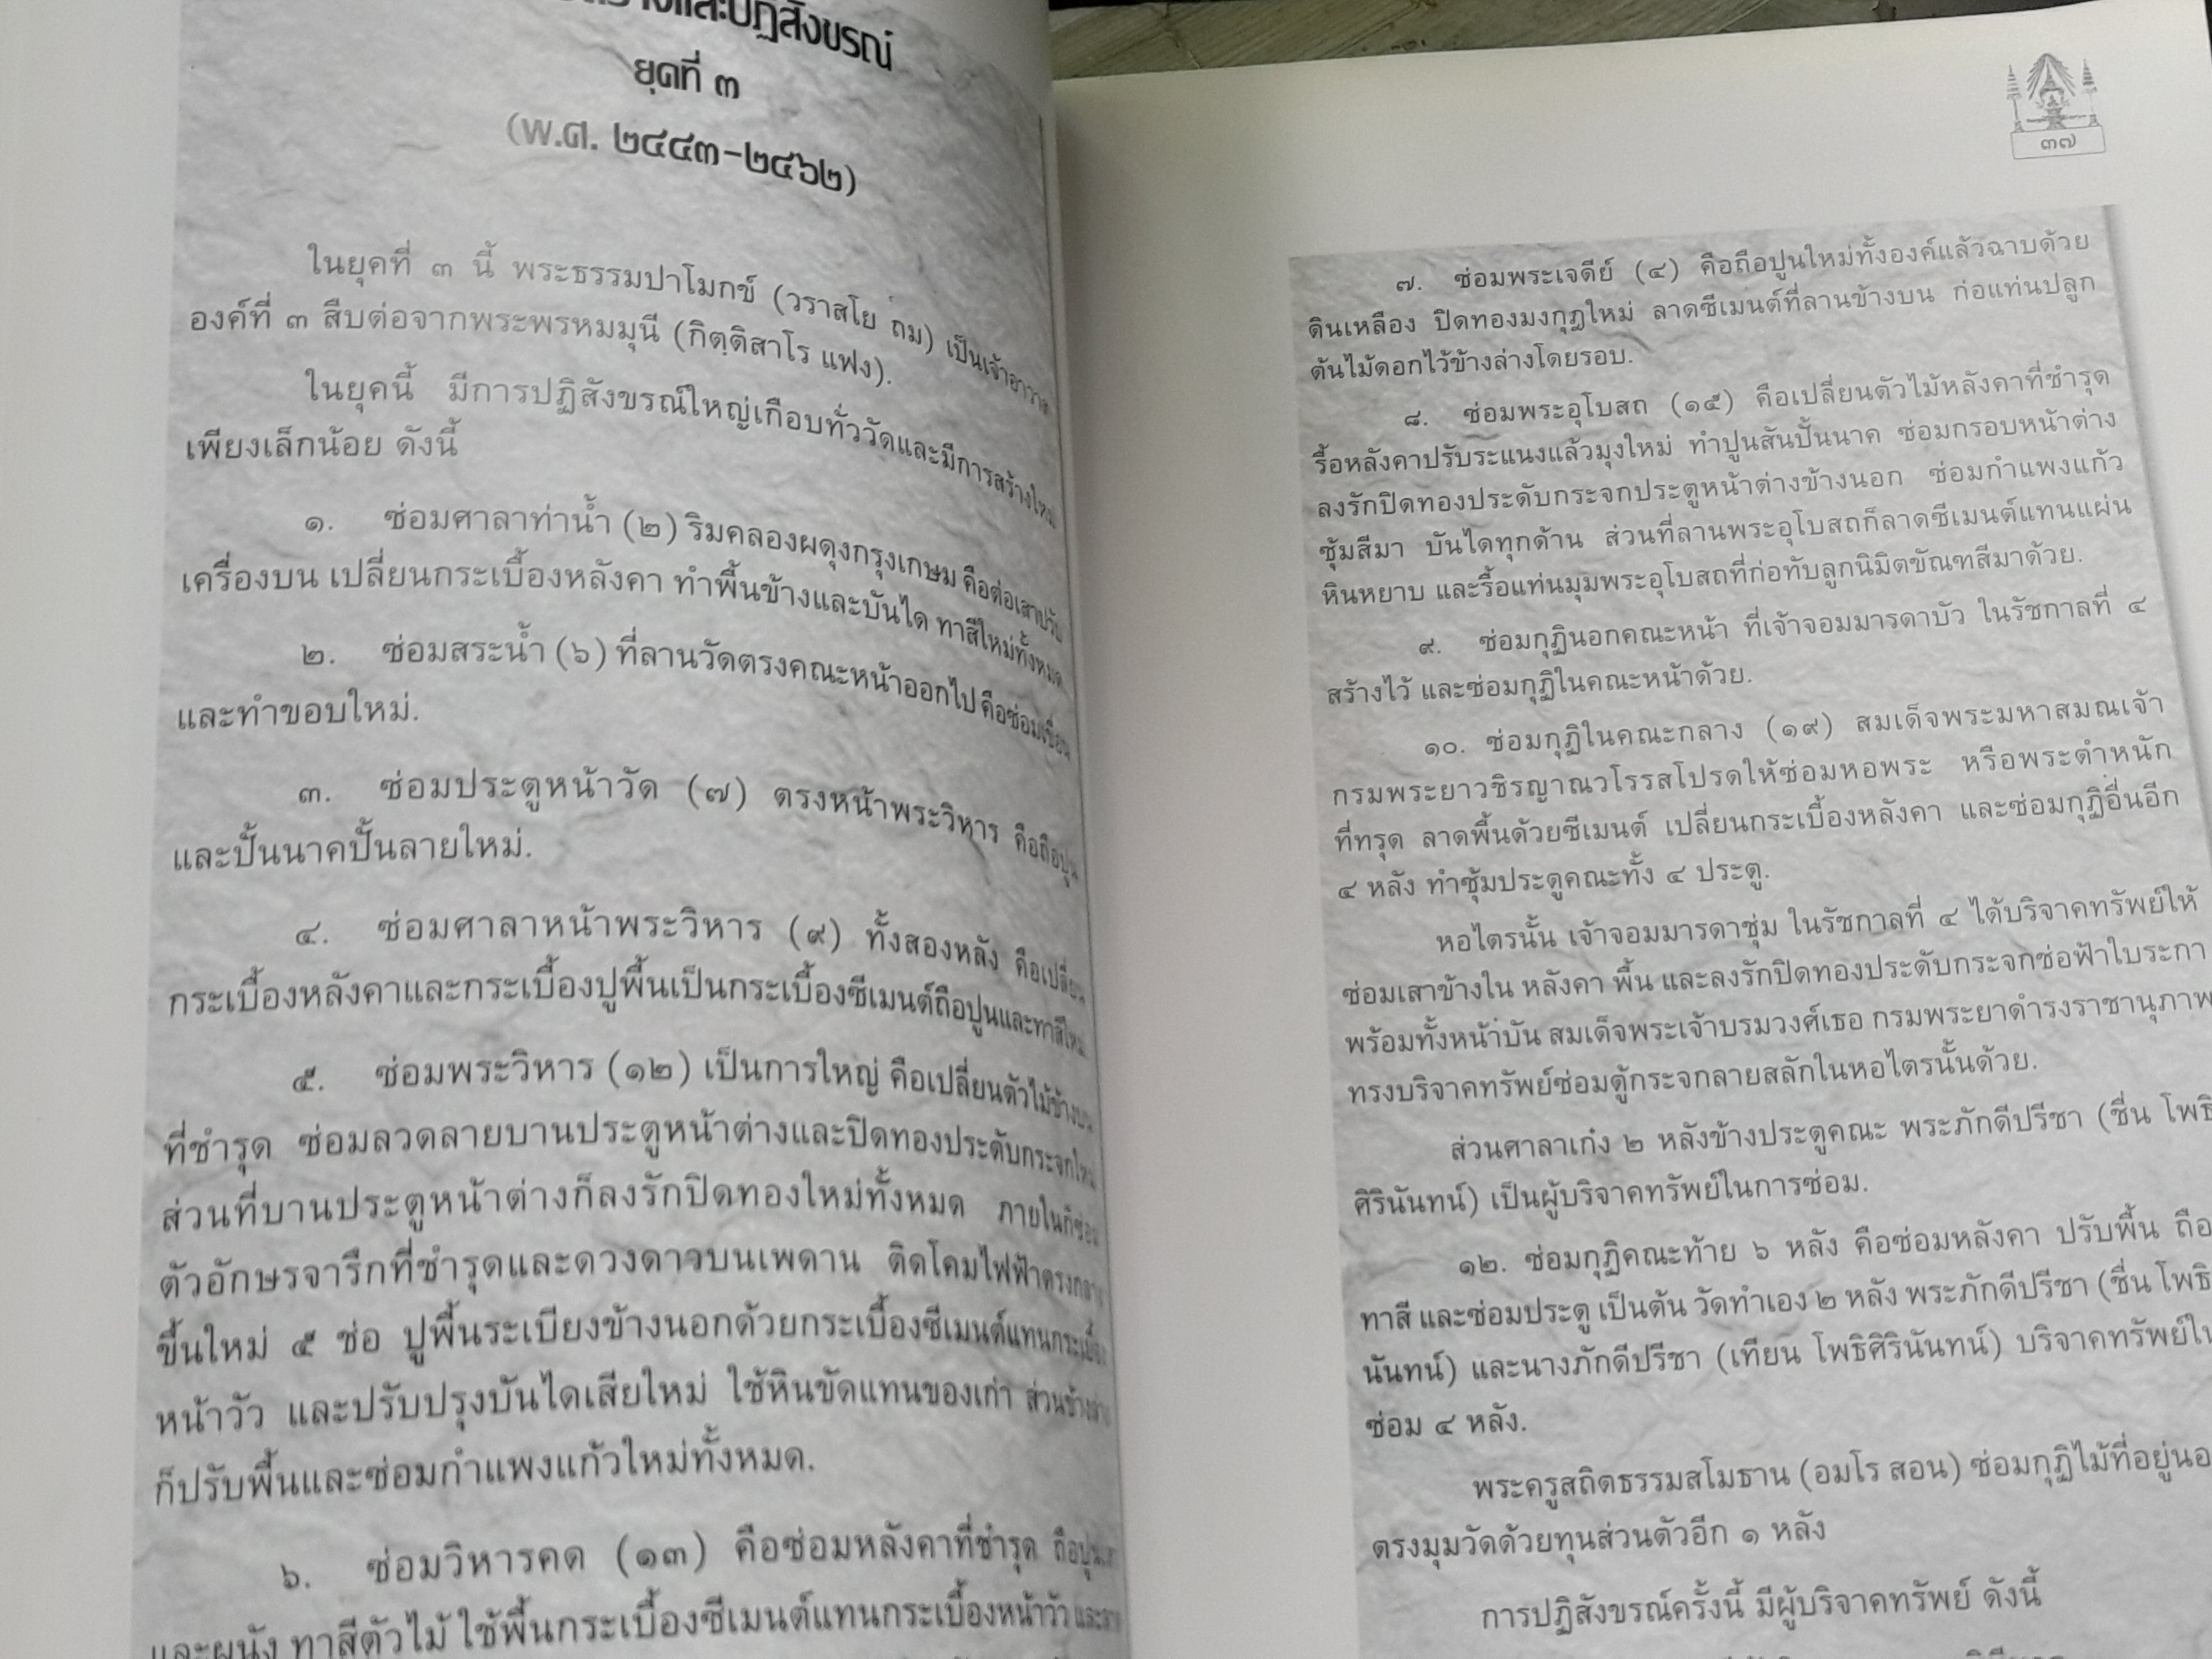 และปฏิสังขรณ์
ยุคที่ ๓
(พ.ศ. ๒๔๔๓-๒๔๖๒)
ในยุคที่ ๓ นี้ พระธรรมปาโมกข์ (วราสโย ถม) เป็นเจ้าอาวาส
องค์ที่ ๓ สืบต่อจากพระพรหมมุนี (กิตฺติสาโร แฟง).
ในยุคนี้ มีการปฏิสังขรณ์ใหญ่เกือบทั่ววัดและมีการสร้างใหม่
เพียงเล็กน้อย ดังนี้
๑. ซ่อมศาลาท่าน้ำ (๒) ริมคลองผดุงกรุงเกษม คือต่อเสาปรับ
เครื่องบน เปลี่ยนกระเบื้องหลังคา ทำพื้นข้างและบันได ทาสีใหม่ทั้งหมด
๒. ซ่อมสระน้ำ (๖) ที่ลานวัดตรงคณะหน้าออกไป คือซ่อมเขื่อน
และทำขอบใหม่.
๓. ซ่อมประตูหน้าวัด (๗) ตรงหน้าพระวิหาร คือถือปูน
และปั้นนาคปั้นลายใหม่.
๔. ซ่อมศาลาหน้าพระวิหาร (๙) ทั้งสองหลัง คือเปลี่ยน
กระเบื้องหลังคาและกระเบื้องปูพื้นเป็นกระเบื้องซีเมนต์ถือปูนและทาสีใหม่
๕. ซ่อมพระวิหาร (๑๒) เป็นการใหญ่ คือเปลี่ยนตัวไม้ข้างบน
ที่ชำรุด ซ่อมลวดลายบานประตูหน้าต่างและปิดทองประดับกระจกใหม่
ส่วนที่บานประตูหน้าต่างก็ลงรักปิดทองใหม่ทั้งหมด ภายในก็ซ่อม
ตัวอักษรจารึกที่ชำรุดและดวงดาวบนเพดาน ติดโคมไฟฟ้าตรงกลาง
ขึ้นใหม่ ๕ ช่อ ปูพื้นระเบียงข้างนอกด้วยกระเบื้องซีเมนต์แทนกระเบื้อง
หน้าวัว และปรับปรุงบันไดเสียใหม่ ใช้หินขัดแทนของเก่า ส่วนข้างล่าง
ก็ปรับพื้นและซ่อมกำแพงแก้วใหม่ทั้งหมด.
๖. ซ่อมวิหารคด (๑๓) คือซ่อมหลังคาที่ชำรุด
และผนัง ทาสีตัวไม้ ใช้พื้นกระเบื้องซีเมนต์แทนกระเบื้องหน้าวัว
๓๗
๗. ซ่อมพระเจดีย์ (๔) คือถือปูนใหม่ทั้งองค์แล้วฉาบด้วย
ดินเหลือง ปิดทองมงกุฎใหม่ ลาดซีเมนต์ที่ลานข้างบน ก่อแท่นปลูก
ต้นไม้ดอกไว้ข้างล่างโดยรอบ.
๘. ซ่อมพระอุโบสถ (๑๕) คือเปลี่ยนตัวไม้หลังคาที่ชำรุด
รื้อหลังคาปรับระแนงแล้วมุงใหม่ ทำปูนสันปั้นนาค ซ่อมกรอบหน้าต่าง
ลงรักปิดทองประดับกระจกประตูหน้าต่างข้างนอก ซ่อมกำแพงแก้ว
ซุ้มสีมา บันไดทุกด้าน ส่วนที่ลานพระอุโบสถก็ลาดซีเมนต์แทนแผ่น
หินหยาบ และรื้อแท่นมุมพระอุโบสถที่ก่อทับลูกนิมิตขัณฑสีมาด้วย.
๙. ซ่อมกุฏินอกคณะหน้า ที่เจ้าจอมมารดาบัว ในรัชกาลที่ ๔
สร้างไว้ และซ่อมกุฏิในคณะหน้าด้วย.
๑๐. ซ่อมกุฏิในคณะกลาง (๑๙) สมเด็จพระมหาสมณเจ้า
กรมพระยาวชิรญาณวโรรสโปรดให้ซ่อมหอพระ หรือพระตำหนัก
ที่ทรุด ลาดพื้นด้วยซีเมนต์ เปลี่ยนกระเบื้องหลังคา และซ่อมกุฏิอื่นอีก
๔ หลัง ทำซุ้มประตูคณะทั้ง ๔ ประตู.
หอไตรนั้น เจ้าจอมมารดาชุ่ม ในรัชกาลที่ ๔ ได้บริจาคทรัพย์ให้
ซ่อมเสาข้างใน หลังคา พื้น และลงรักปิดทองประดับกระจกช่อฟ้าใบระกา
พร้อมทั้งหน้าบัน สมเด็จพระเจ้าบรมวงศ์เธอ กรมพระยาดำรงราชานุภาพ
ทรงบริจาคทรัพย์ซ่อมตู้กระจกลายสลักในหอไตรนั้นด้วย.
ส่วนศาลาเก๋ง ๒ หลังข้างประตูคณะ พระภักดีปรีชา (ชื่น โพธิ
ศิรินันทน์) เป็นผู้บริจาคทรัพย์ในการซ่อม.
๑๒. ซ่อมกุฏิคณะท้าย ๖ หลัง คือซ่อมหลังคา ปรับพื้น ถือ
ทาสี และซ่อมประตู เป็นต้น วัดทำเอง ๒ หลัง พระภักดีปรีชา (ชื่น โพธิ
นันทน์) และนางภักดีปรีชา (เทียน โพธิศิรินันทน์) บริจาคทรัพย์ใน
ซ่อม ๔ หลัง.
พระครูสถิตธรรมสโมธาน (อมโร สอน) ซ่อมกุฏิไม้ที่อยู่นอ
ตรงมุมวัดด้วยทุนส่วนตัวอีก ๑ หลัง
การปฏิสังขรณ์ครั้งนี้ มีผู้บริจาคทรัพย์ ดังนี้